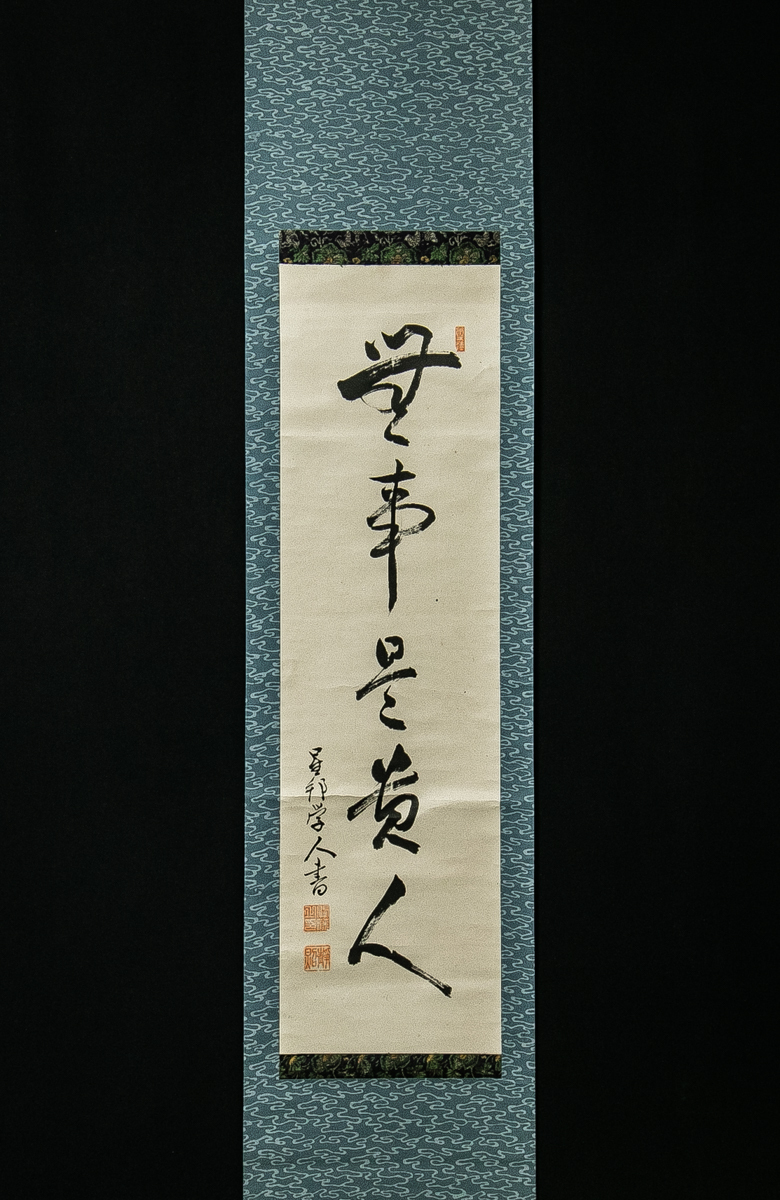 無事是貴人
星邦学人書